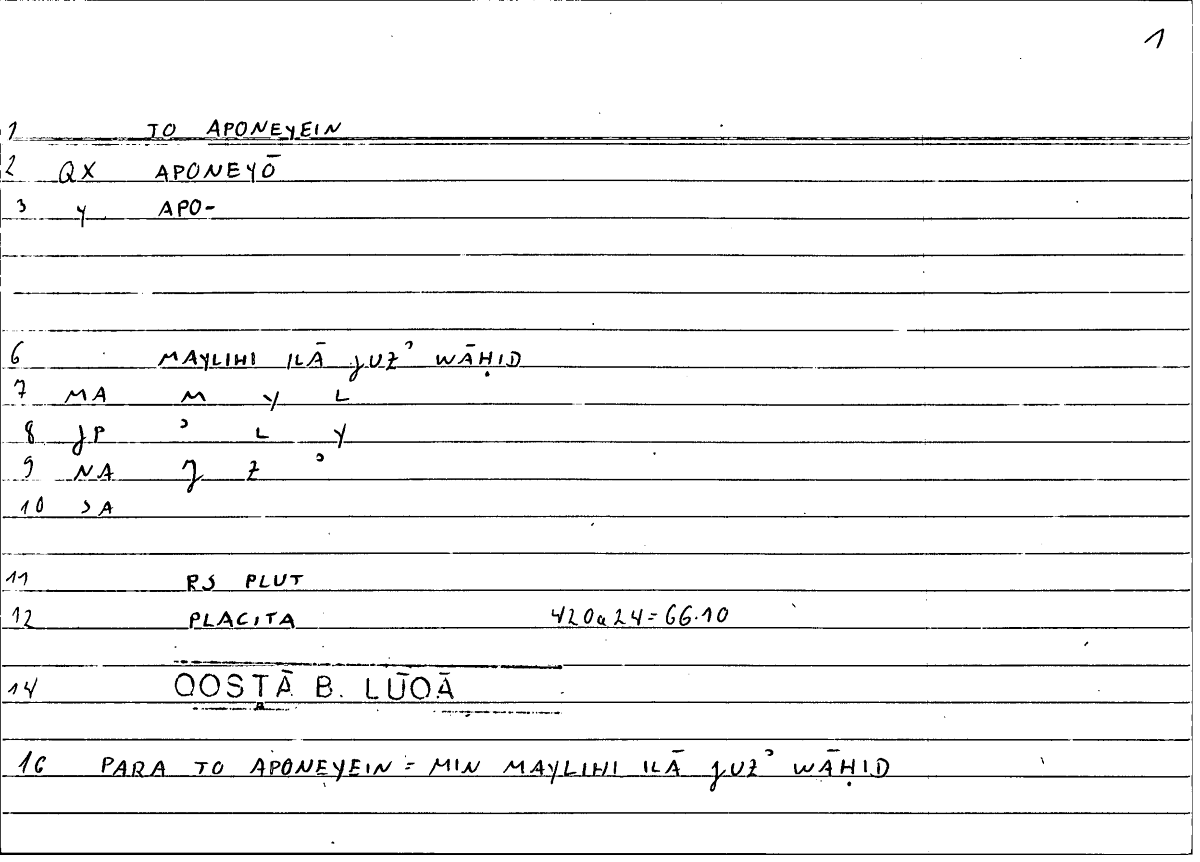 1
1 TO APONEYEIN
2 QX APONEYŌ
3 Y APO-
6 MAYLIHI ILĀ JUZʾ WĀḤID
7 MA M Y L
8 JP ʾ L Y
9 NA J Z ʾ
10 SA
11 PS PLUT
12 PLACITA 420a24=66.10
14 QOSṬĀ B. LŪQĀ
16 PARA TO APONEYEIN = MIN MAYLIHI ILĀ JUZʾ WĀḤID